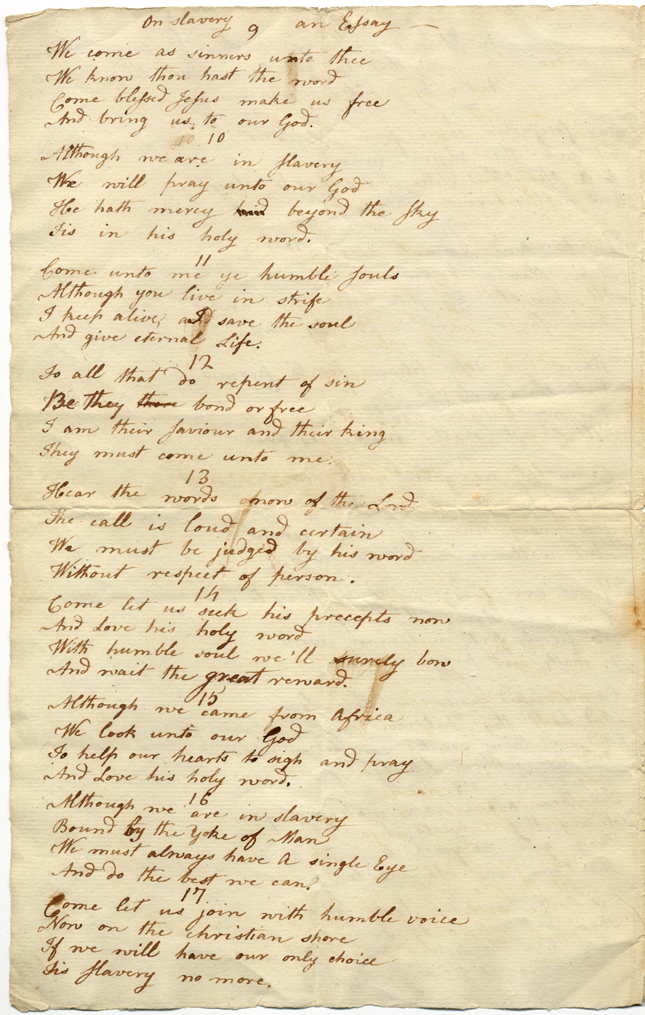 On slavery 9 an Essay —
We come as sinners unto thee
We know thou hast the word
Come blessed Jesus make us free
And bring us to our God.
10
Although we are in slavery
We will pray unto our God
He hath mercy hid beyond the sky
Tis in his holy word.
11
Come unto me ye humble souls
Although you live in strife
I keep alive, I save the soul
And give eternal Life.
12
To all that do repent of sin
Be they there bond or free
I am their saviour and their king
They must come unto me.
13
Hear the words now of the Lord
The call is loud and certain
We must be judged by his word
Without respect of person.
14
Come let us seek his precepts now
And Love his holy word
With humble soul we'll surely bow
And wait the great reward.
15
Although we came from Africa
We look unto our God
To help our hearts to sigh and pray
And Love his holy word.
16
Although we are in slavery
Bound by the Yoke of Man
We must always have A single Eye
And do the best we can.
17
Come let us join with humble voice
Now on the christian shore
If we will have our only choice
Tis slavery no more.